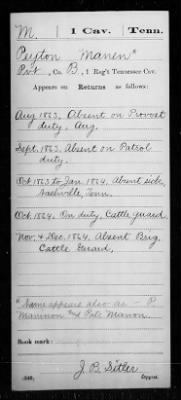 M. | 1 Cav. | Tenn.
Peyton Manen*
Pvt., Co. B, 1 Reg't Tennessee Cav.
Appears on
Returns as follows:
Aug 1863, Absent on Provost
duty, Aug.
Sept. 1863, Absent on Patrol
duty.
Oct 1863 to Jan 1864, Absent sick,
Nashville, Tenn.
Oct 1864. On duty, Cattle guard.
Nov. & Dec. 1864, Absent Brig.
Cattle Guard.
*Name appears also as - P.
Maninon and Pate Manon.
Book mark:
(546)
J. B. Sitler
Copyist.